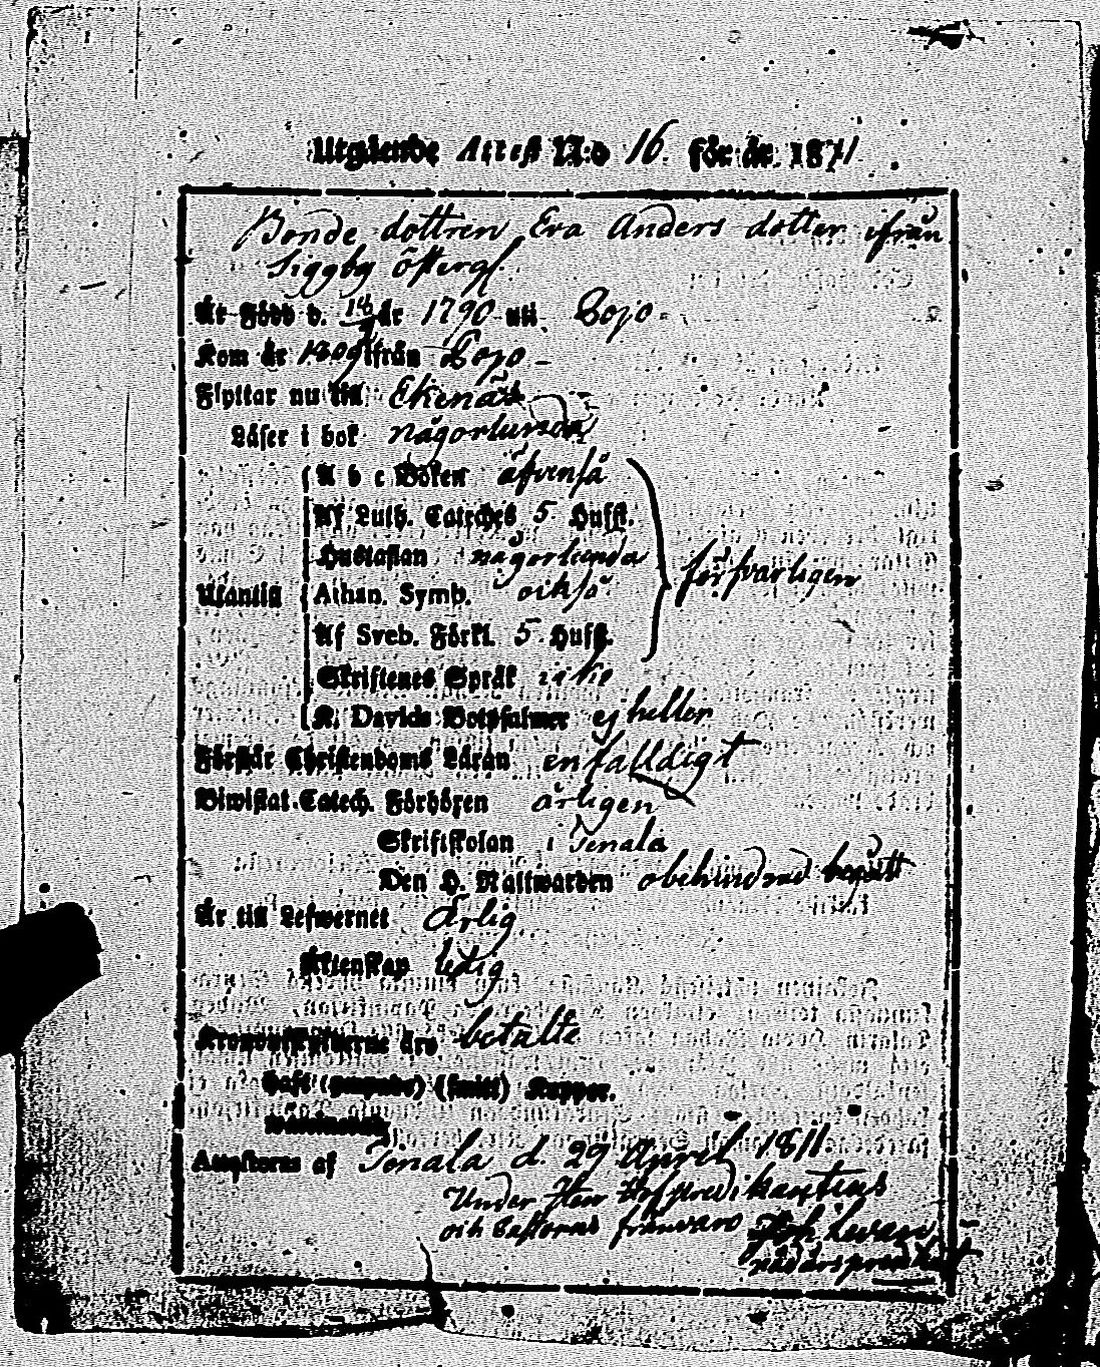 Utgående Attest N:o 16. för år 1811
Bonde dottren Eva Anders dotter ifrån
Siggby
Är Född d. 18 år 1790 uti Lojo
Kom år 1809 ifrån Lojo
Flyttar nu till Ekenäs
Läser i bok någorlunda
A b c Boken äfvenså
Af Luth. Cateches 5 Hufst.
Hustaflan någorlunda
Utantill Athan. Symb. också försvarligen
Af Sveb. Förkl. 5 Hufst.
Skriftenes Språk icke
K. Davids Botpsalmer ej heller
Förstår Christendoms Läran enfalldigt
Biwistat Catech. Förhören årligen
Skriftskolan i Tenala
Den H. Nattwarden obehindrad begått
Är till Lefwernet Ärlig
Äktenskap ledig
Kronoutskylderne äro betalte
haft (smitt) Koppor.
Attesteras af Tenala d. 29 April 1811.
Under Herr Hofpredikantens
och Pastorns frånvaro Joh.
nådårspredikant